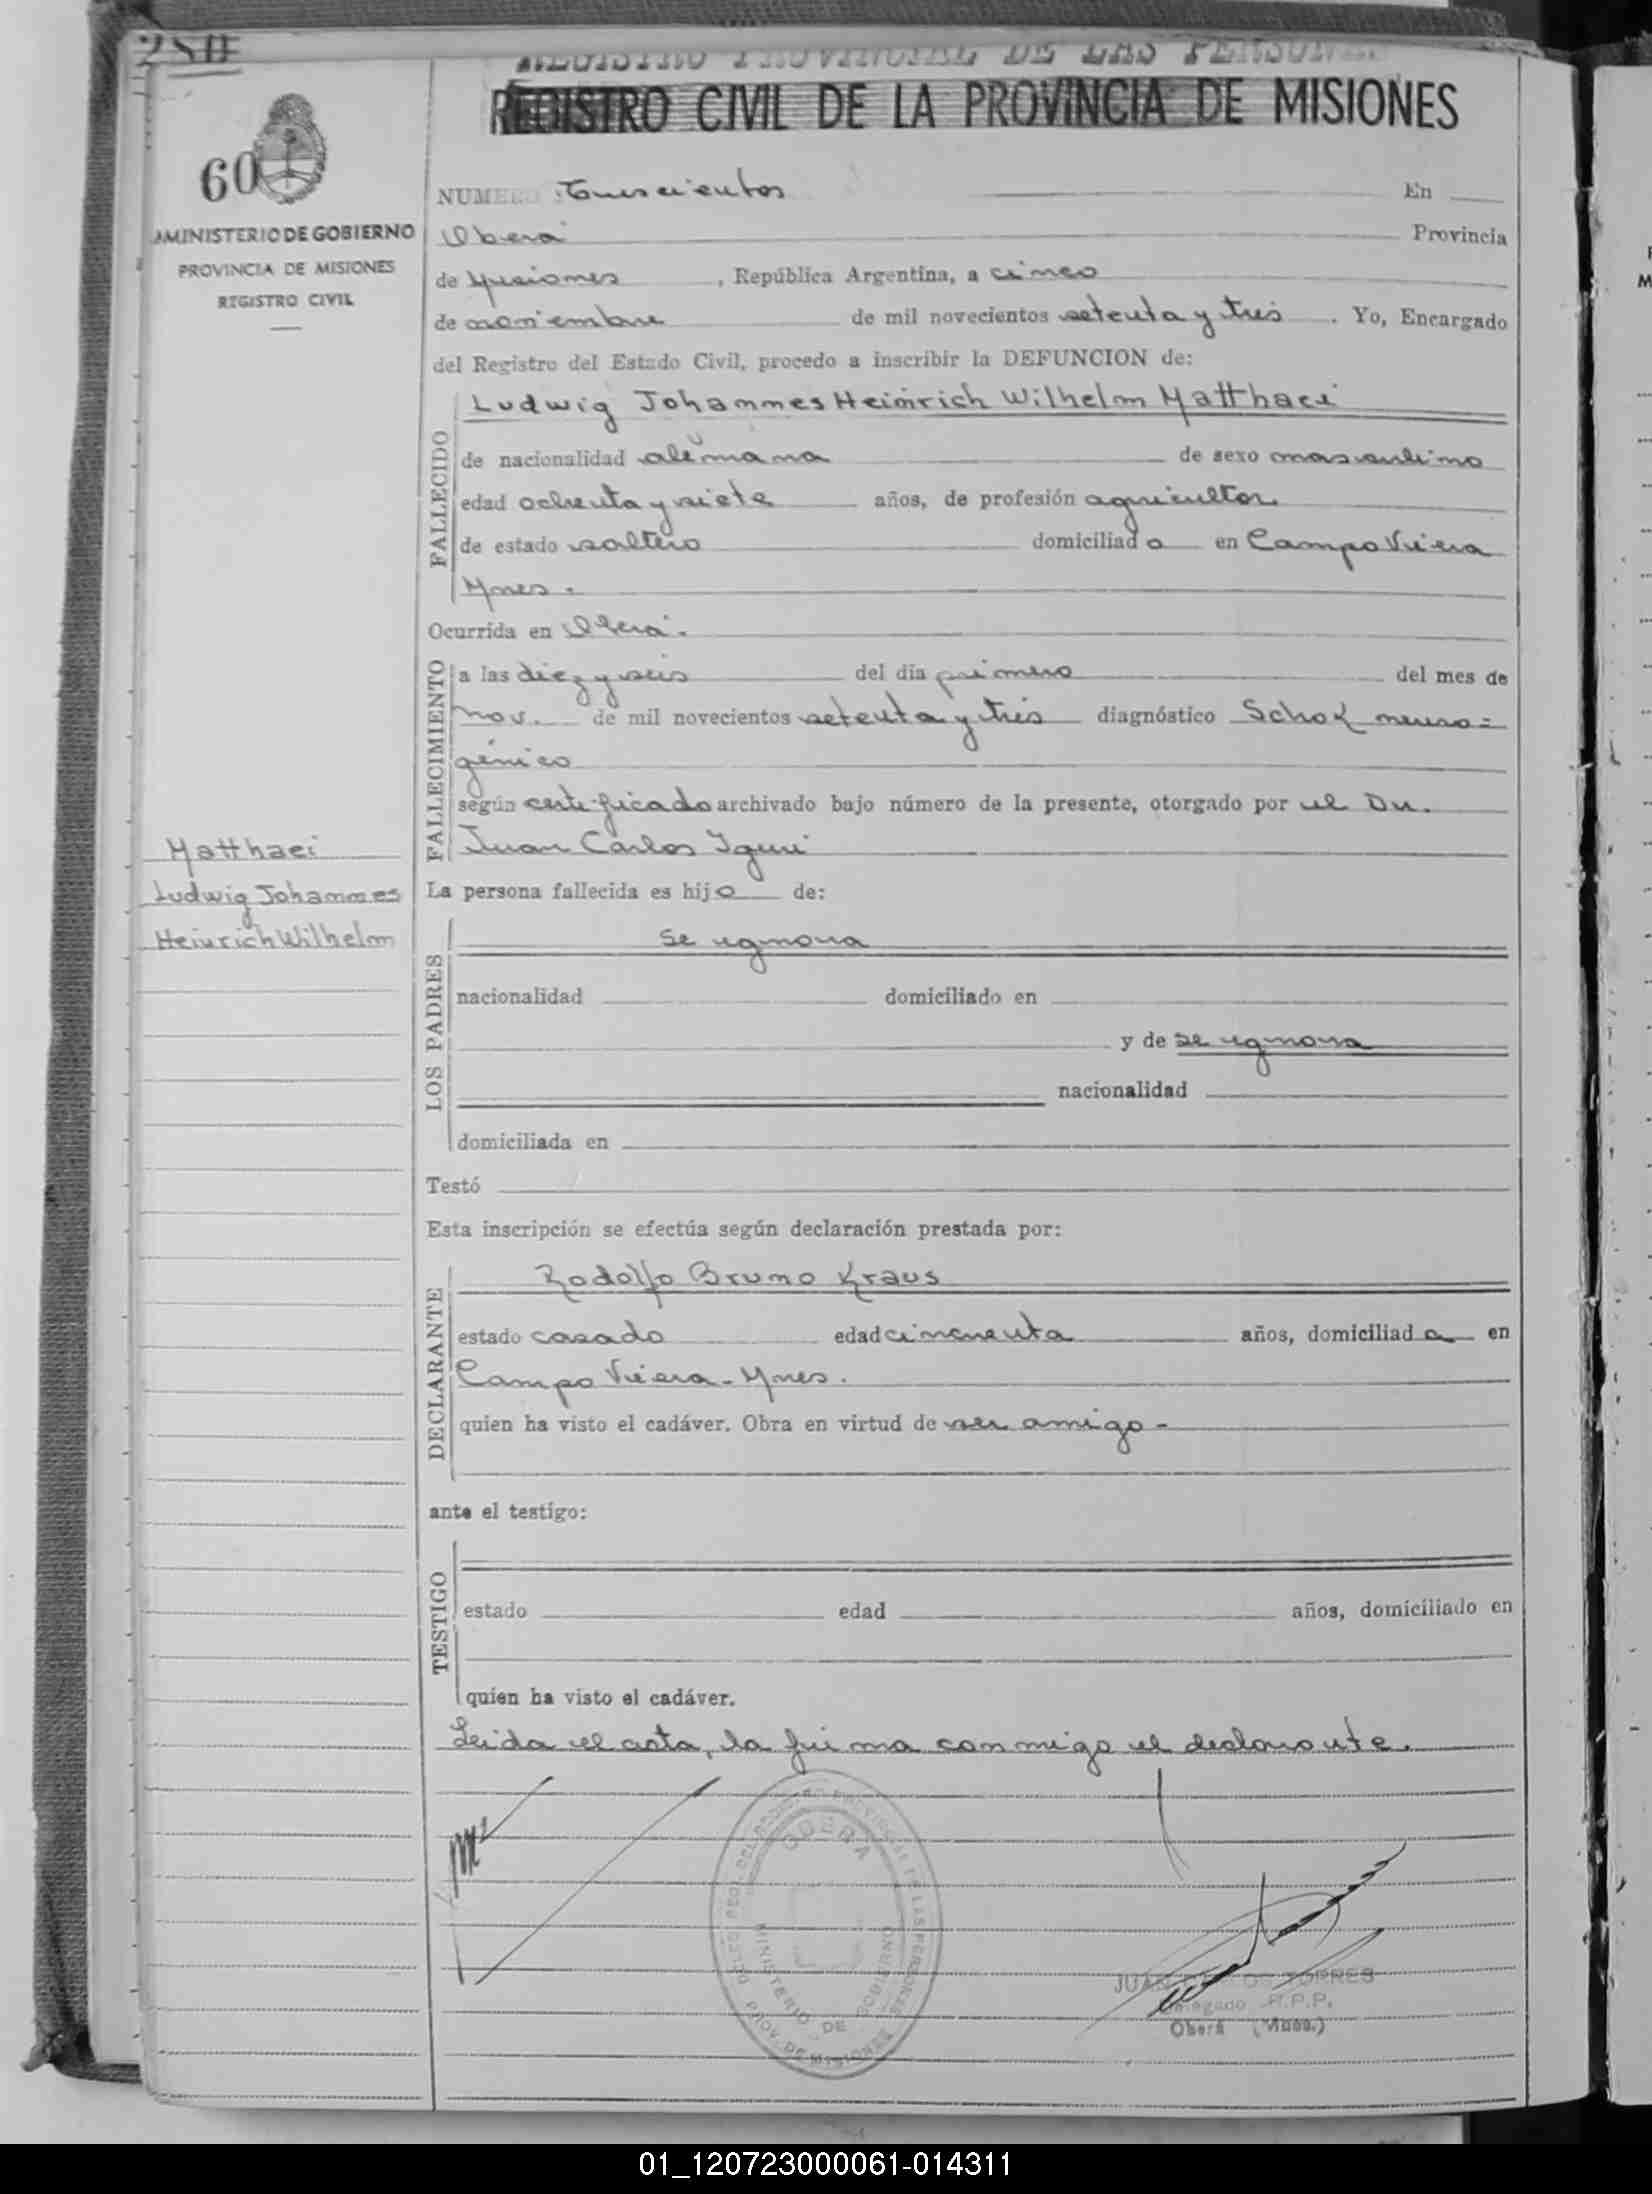 280
REGISTRO PROVINCIAL DE LAS PERSONAS
REGISTRO CIVIL DE LA PROVINCIA DE MISIONES
60
MINISTERIO DE GOBIERNO
PROVINCIA DE MISIONES
REGISTRO CIVIL
NUMERO Trescientos En
Oberá Provincia
de Misiones, República Argentina, a cinco
de noviembre de mil novecientos setenta y tres. Yo, Encargado
del Registro del Estado Civil, procedo a inscribir la DEFUNCION de:
FALLECIDO
Ludwig Johannes Heinrich Wilhelm Matthaei
de nacionalidad alemana de sexo masculino
edad ochenta y siete años, de profesión agricultor
de estado soltero domiciliado en Campo Viera
Mnes.
Ocurrida en Oberá.
FALLECIMIENTO
a las diez y seis del día primero del mes de
nov. de mil novecientos setenta y tres diagnóstico Schok neuro=
génico
según certificado archivado bajo número de la presente, otorgado por el Dr.
Juan Carlos Iguri
La persona fallecida es hijo de:
Matthaei
Ludwig Johannes
Heinrich Wilhelm
LOS PADRES
se ignora
nacionalidad domiciliado en
y de se ignora
nacionalidad
domiciliada en
Testó
Esta inscripción se efectúa según declaración prestada por:
DECLARANTE
Rodolfo Bruno Kraus
estado casado edad cincuenta años, domiciliado en
Campo Viera - Mnes.
quien ha visto el cadáver. Obra en virtud de ser amigo-
ante el testigo:
TESTIGO
estado edad años, domiciliado en
quien ha visto el cadáver.
Leida el acta, la firma conmigo el declarante.
OBERA
MINISTERIO DE GOBIERNO
PROV. DE MISIONES
JUAN CARLOS TORRES
Delegado R.P.P.
Oberá (Mnes.)
01_120723000061-014311